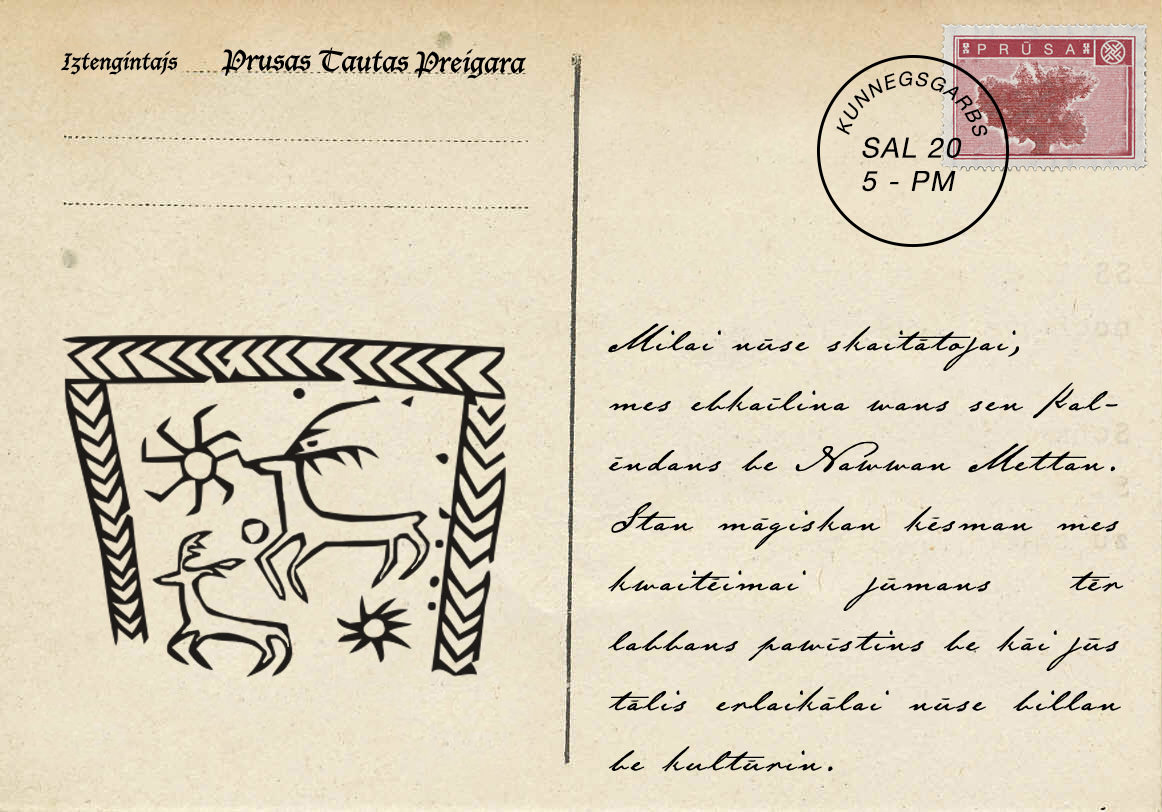 Iztengintajs Prusas Tautas Preigara
PRŪSA
KUNNEGSGARBS
SAL 20
5 - PM
Milai nūse skaitātojai,
mes ebkaīlina wans sen Kal-
ēndans be Nawwan Mettan.
Stan māgiskan kēsman mes
kwaitēimai jūmans tēr
labbans pawīstins be kāi jūs
tālis erlaikālai nūse billan
be kultūrin.